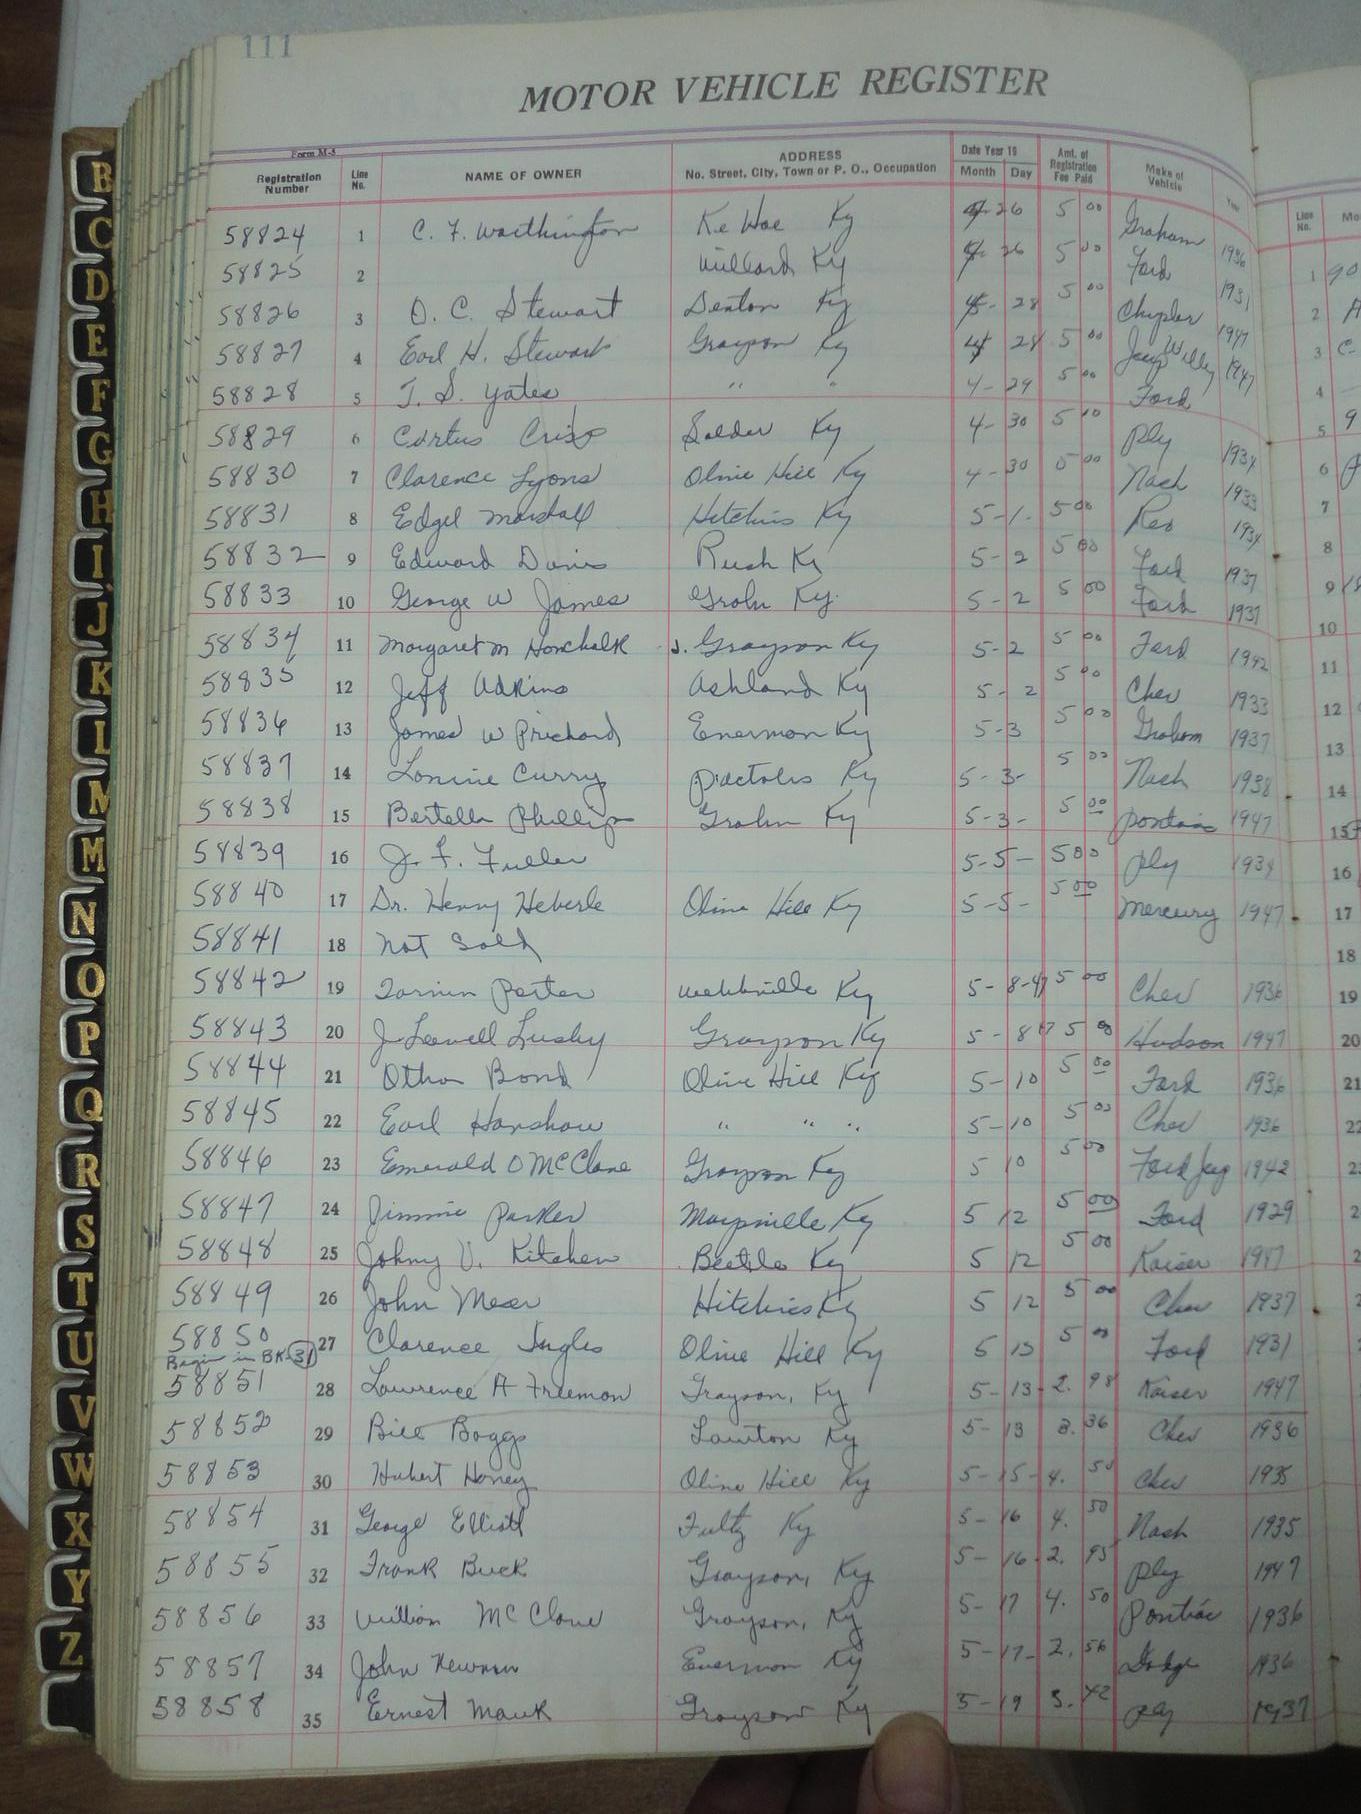 111
MOTOR VEHICLE REGISTER
Form M-5
Registration Number Line No. NAME OF OWNER ADDRESS No. Street, City, Town or P. O., Occupation Date Year 19 Month Day Amt. of Registration Fee Paid Make of Vehicle Year
58824 1 C. F. Worthington Ke Hoe Ky 4-26 5 00 Graham 1936
58825 2 Willard Ky 4-26 5 00 Ford 1931
58826 3 O. C. Stewart Denton Ky 4-28 5 00 Chrysler 1947
58827 4 Earl H. Stewart Grayson Ky 4 28 5 00 Jeep Willys 1947
58828 5 T. S. Yates " " 4-29 5 00 Ford
58829 6 Curtus Crisp Soldier Ky 4-30 5 00 Ply 1934
58830 7 Clarence Lyons Olive Hill Ky 4-30 5 00 Nash 1933
58831 8 Edgel Marshall Hitchins Ky 5-1- 5 00 Reo 1934
58832 9 Edward Davis Rush Ky 5-2 5 00 Ford 1937
58833 10 George W James Grahn Ky 5-2 5 00 Ford 1937
58834 11 Margaret M Grayson Ky 5-2 5 00 Ford 1942
58835 12 Jeff Adkins Ashland Ky 5-2 5 00 Chev 1933
58836 13 James W Prichard Enermon Ky 5-3 5 00 Graham 1937
58837 14 Lonnie Curry Pactolus Ky 5-3- 5 00 Nash 1938
58838 15 Bertella Phillips Grahn Ky 5-3- 5 00 Pontiac 1947
58839 16 J. F. Fuller 5-5- 5 00 Ply 1934
58840 17 Dr. Henry Heberle Olive Hill Ky 5-5- 5 00 Mercury 1947
58841 18 Not Sold
58842 19 Porter Webbville Ky 5-8-47 5 00 Chev 1936
58843 20 J Lowell Lusby Grayson Ky 5-8 47 5 00 Hudson 1947
58844 21 Otha Bond Olive Hill Ky 5-10 5 00 Ford 1936
58845 22 Earl Hanshaw " " " 5-10 5 00 Chev 1936
58846 23 Emerald O McClane Grayson Ky 5 10 5 00 Ford Jeep 1942
58847 24 Jimmie Parker Maysville Ky 5 12 5 00 Ford 1929
58848 25 Johny V. Kitchen Beetle Ky 5 12 5 00 Kaiser 1947
58849 26 John Hitchins Ky 5 12 5 00 Chev 1937
58850 27 Clarence Ingles Olive Hill Ky 5 13 5 00 Ford 1931
Begin in BK-31
58851 28 Lawrence A Freeman Grayson, Ky 5-13- 2.98 Kaiser 1947
58852 29 Bill Boggs Lawton Ky 5-13 3.36 Chev 1936
58853 30 Hubert Haney Olive Hill Ky 5-15- 4.50 Chev 1935
58854 31 George Elliott Fultz Ky 5-16 4.50 Nash 1935
58855 32 Frank Buck Grayson, Ky 5-16 2.95 Ply 1947
58856 33 William McClane Grayson, Ky 5-17 4.50 Pontiac 1936
58857 34 John Newman Enermon Ky 5-17- 2.56 Dodge 1936
58858 35 Ernest Mauk Grayson Ky 5-19 3.42 Ply 1937
B
C
D
E
F
G
H
I
J
K
L
M
M
N
O
P
Q
R
S
T
U
V
W
X
Y
Z